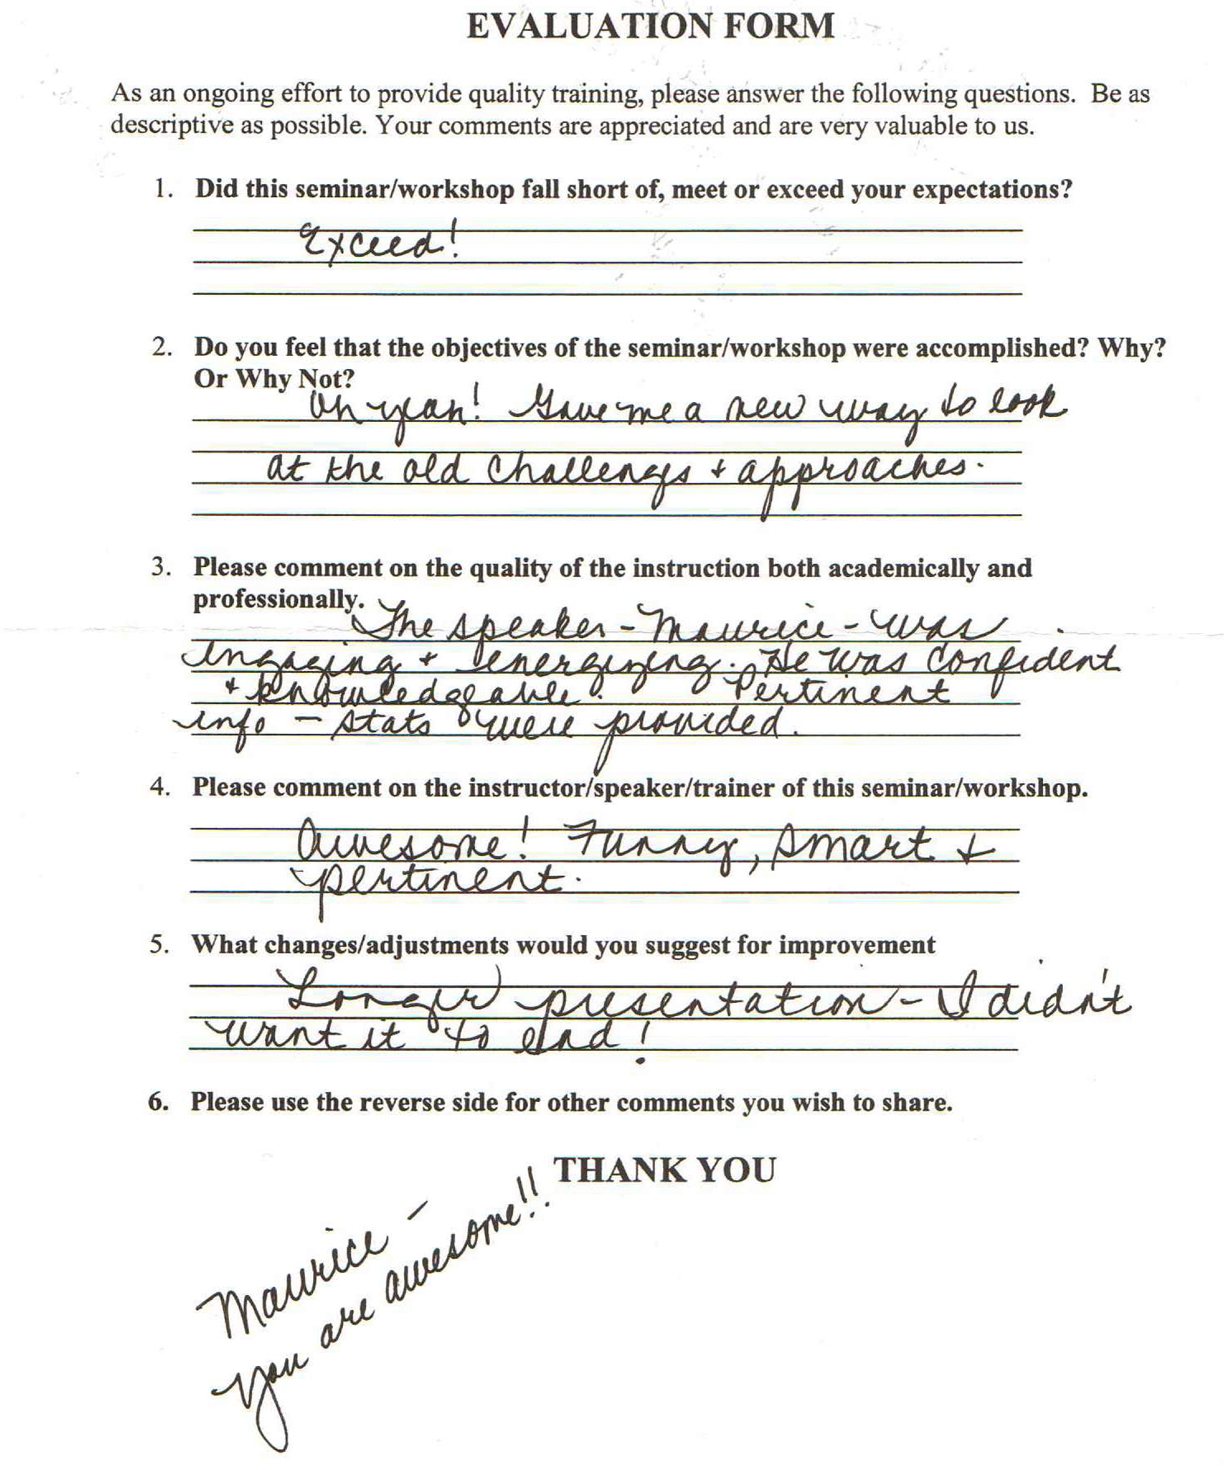 EVALUATION FORM
As an ongoing effort to provide quality training, please answer the following questions. Be as
descriptive as possible. Your comments are appreciated and are very valuable to us.
1. Did this seminar/workshop fall short of, meet or exceed your expectations?
Exceed!
2. Do you feel that the objectives of the seminar/workshop were accomplished? Why?
Or Why Not?
Oh yeah! Gave me a new way to look
at the old challenges + approaches.
3. Please comment on the quality of the instruction both academically and
professionally.
The speaker - Maurice - was
engaging + energizing. He was confident
+ knowledgeable. Pertinent
info - stats were provided.
4. Please comment on the instructor/speaker/trainer of this seminar/workshop.
Awesome! Funny, smart +
pertinent.
5. What changes/adjustments would you suggest for improvement
Longer presentation - I didn't
want it to end!
6. Please use the reverse side for other comments you wish to share.
THANK YOU
Maurice -
you are awesome!!